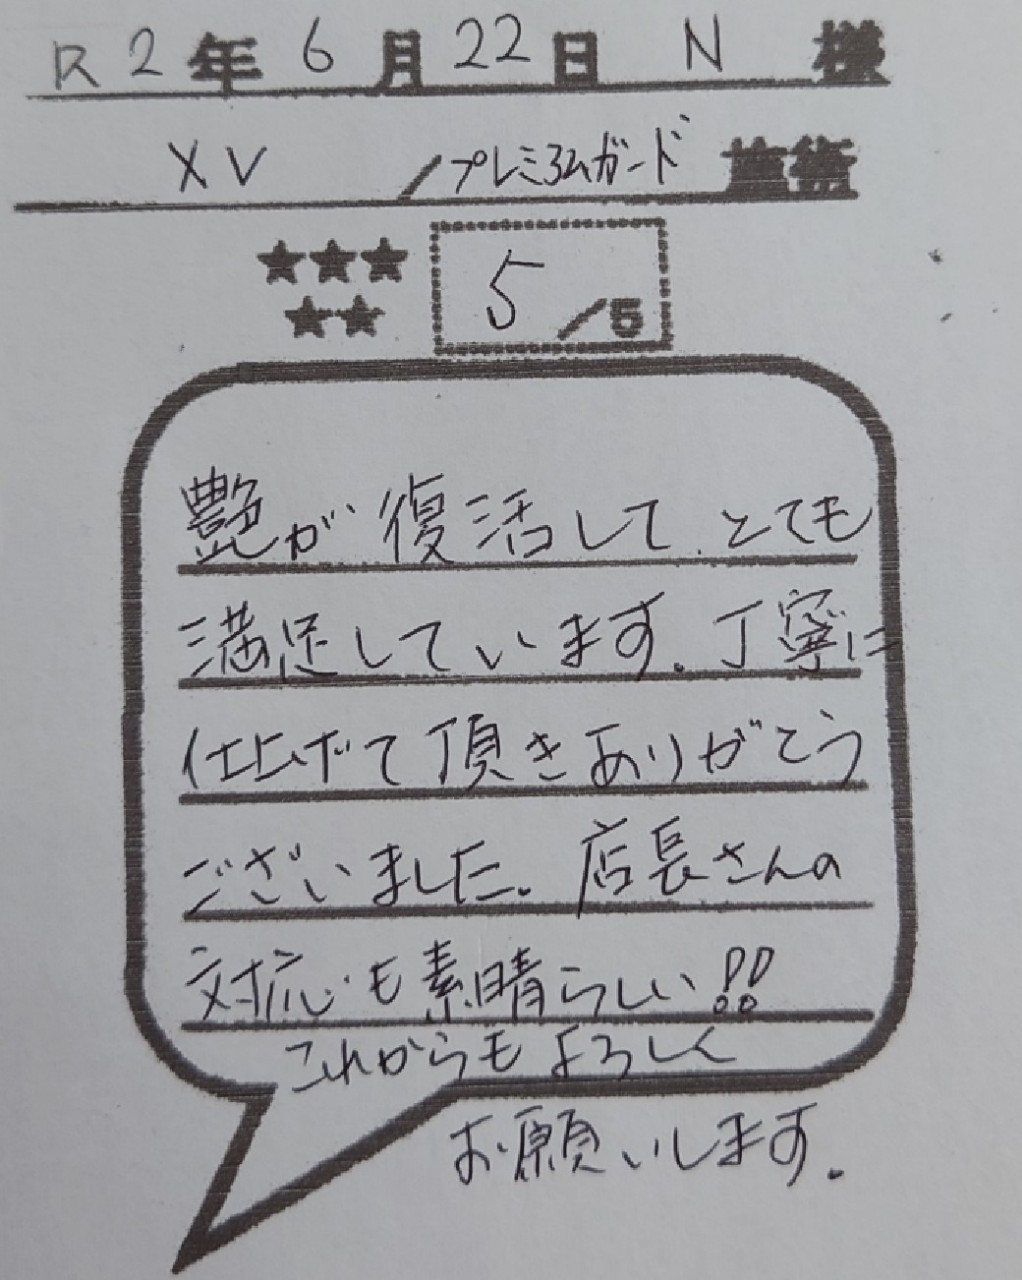 R2年6月22日 N 様
XV /プレミアムガード 施術
★★★
★★
5/5
艶が復活して、とても
満足しています。丁寧に
仕上げて頂きありがとう
ございました。店長さんの
対応も素晴らしい!!
これからもよろしく
お願いします。